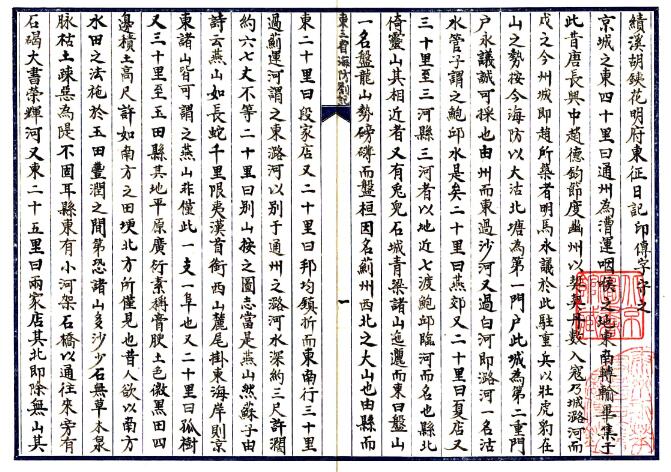 績溪胡鐵花明府東征日記 印傳字守之
京城之東四十里曰通州為漕運咽喉之地東南轉輸畢集于
此昔唐長興中趙德鈞節度幽州以契丹數入寇乃城潞河而
戍之今州城即趙所築者明馬永議於此駐重兵以壯虎豹在
山之勢按今海防以大沽北塘為第一門戶此城為第二重門
戶永議誠可採也由州而東過沙河又過白河即潞河一名沽
水管子謂之鮑邱水是矣二十里曰燕郊又二十里曰夏店又
三十里至三河縣三河者以地近七渡鮑邱臨河而名也縣北
倚靈山其相近者又有兎兒石城青梁諸山迤邐而東曰盤山
一名盤龍山勢磅礴而盤桓因名薊州西北之大山也由縣而
東三省海防劄記
一
東二十里曰段家店又二十里曰邦均鎮折而東南行三十里
過薊運河謂之東潞河以別于通州之潞河水深約三尺許濶
約六七丈不等二十里曰別山按之圖志當是燕山然蘇子由
詩云燕山如長蛇千里限夷漢首銜西山麓尾掛東海岸則京
東諸山皆可謂之燕山非僅此一支一阜也又二十里曰孤樹
又三十里至玉田縣其地平原廣衍素稱膏腴土色微黑田四
邊積土高尺許如南方之田埂北方所僅見也昔人欲以南方
水田之法施於玉田豐潤之間第恐諸山多沙少石無草木泉
脉枯土疎惡為隄不固耳縣東有小河架石橋以通往來旁有
石碣大書榮輝河又東二十五里曰兩家店其北即除無山其